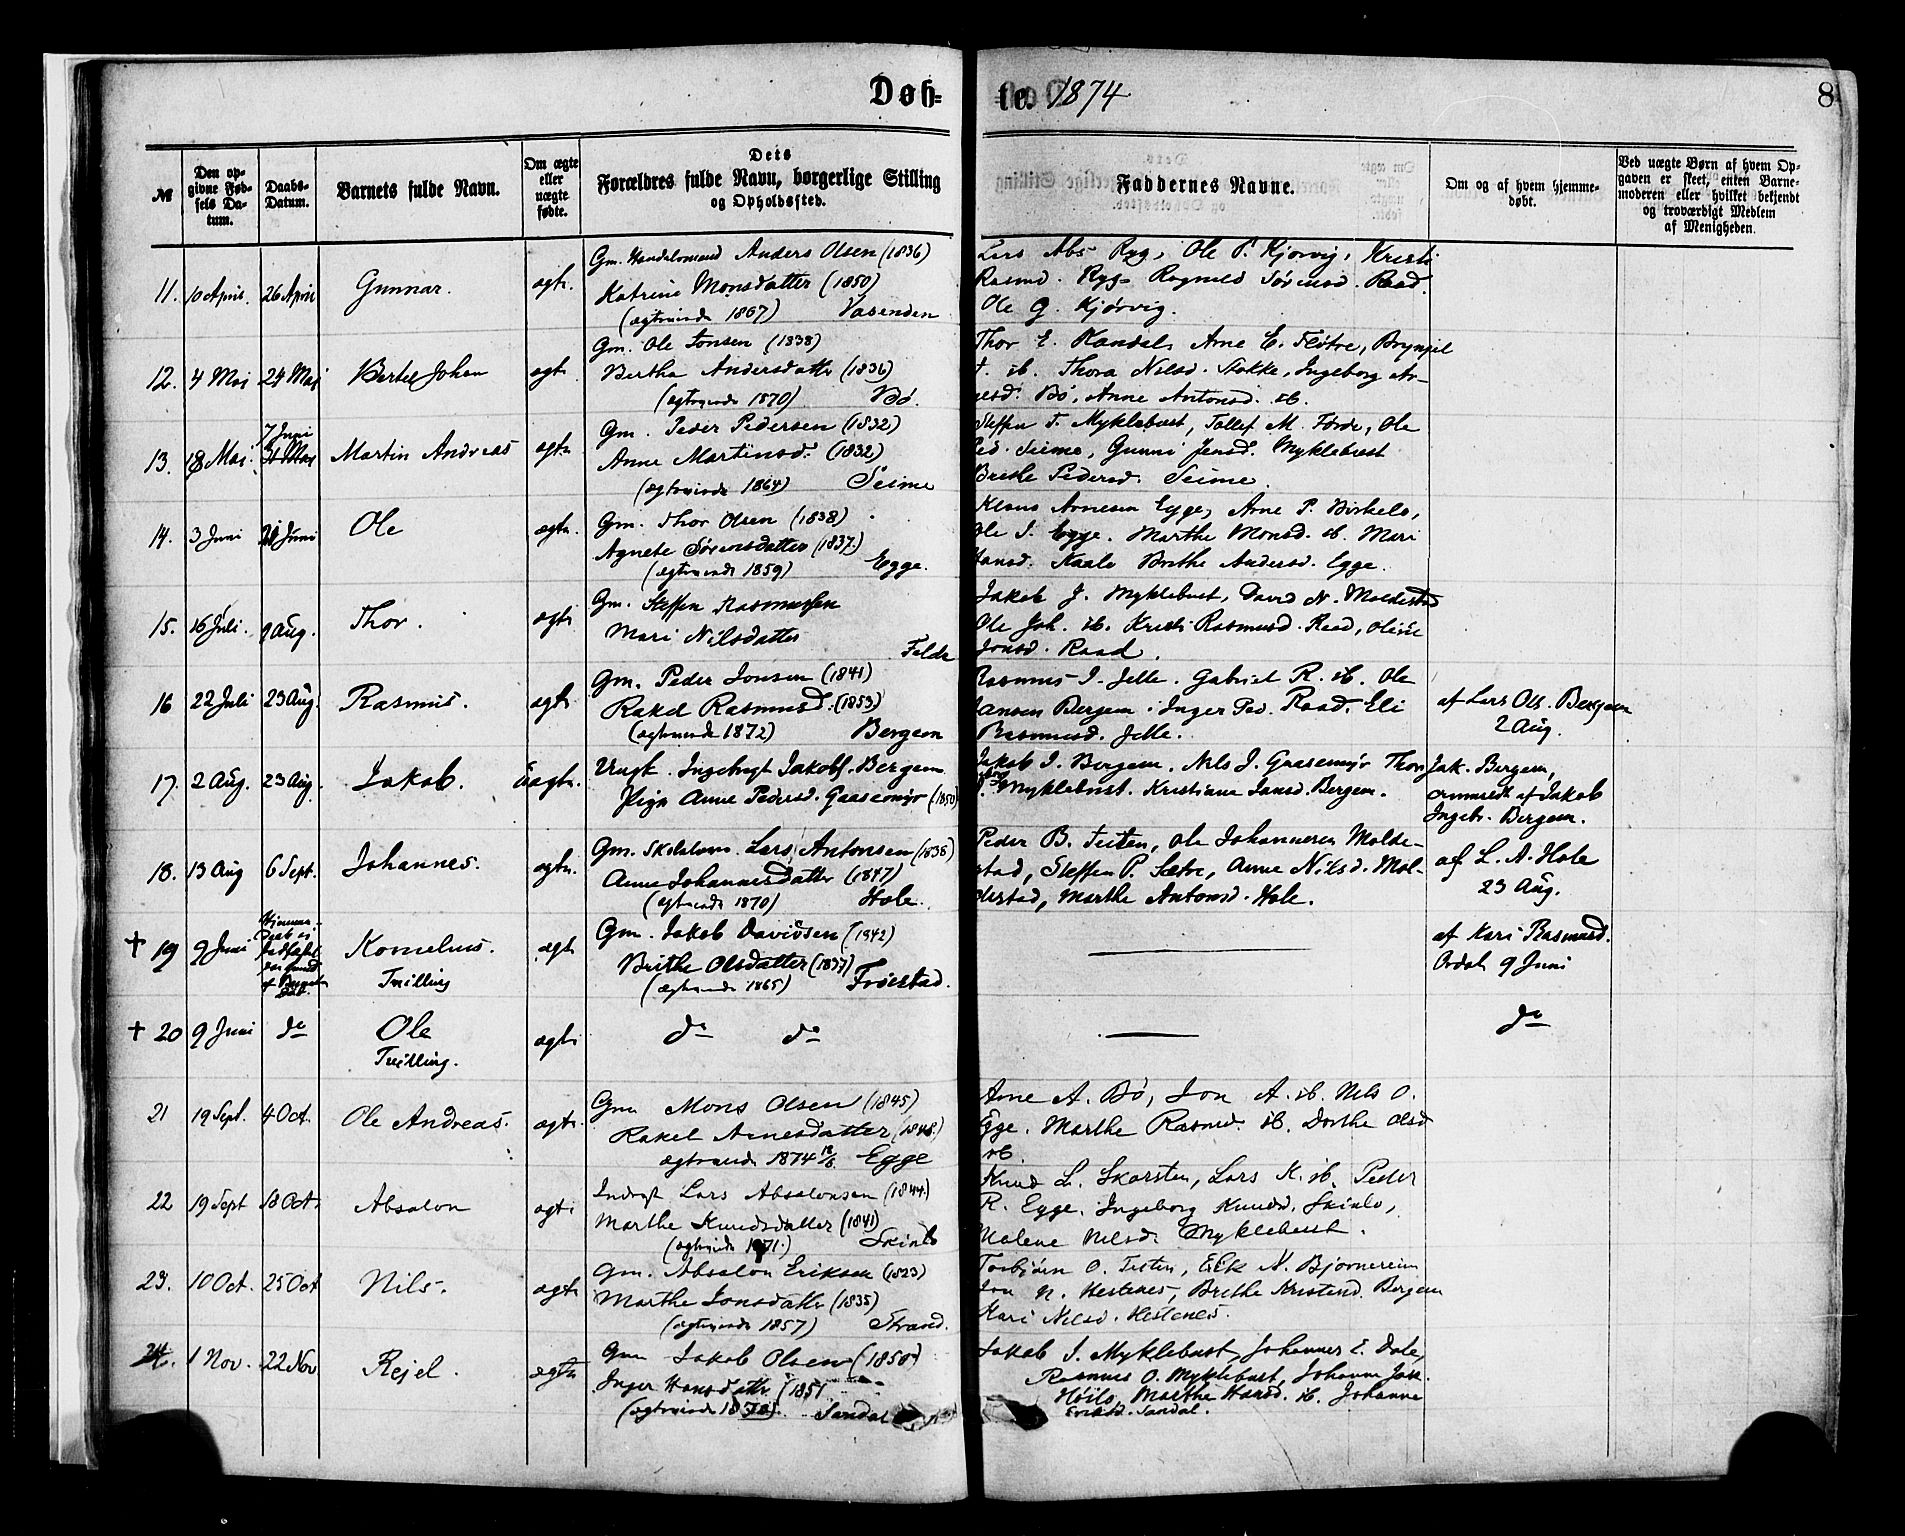 Døb=
te. 1874
8
№
Den op-
givne Fød-
sels Da-
tum.
Daabs-
Datum.
Barnets fulde Navn.
Om ægte
eller
uægte
fødte.
Dets
Forældres fulde Navn, borgerlige Stilling
og Opholdssted.
Faddernes Navne.
Om og af hvem hjemme-
døbt.
Ved uægte Børn af hvem Op-
gaven er skeet, enten Barne-
moderen eller hvilket bekjendt
og troværdigt Medlem
af Menigheden.
11. 10 April. 26 April Gunnar. ægte.
Gm. Handelsmand Anders Olsen (1836)
Katrine Monsdatter (1850)
(ægteviede 1867) Vasenden
Lars Abs Ryg, Ole P. Kjørvig, Kristi
Rasmd. Ryg. Ragnild Sørensd. Raad.
Ole G. Kjørvig.
12. 4 Mai 24 Mai Bertel Johan ægte
Gm. Ole Jonsen (1838)
Bertha Andersdatter (1836)
(ægteviede 1870) Bø.
Thor E. Kandal, Arne E. Fløtre, Brynjel
ib. Thora Nilsd. Stokke, Ingeborg Ar-
nesd. Bø, Anne Antonsd. ib.
13. 18 Mai. 7 Juni Martin Andreas ægte
Gm. Peder Pedersen (1832)
Anne Martinsd. (1832)
(ægteviede 1864) Seime
Steffen T. Myklebust, Tollef M. Førde, Ole
Ped. Seime, Gunni Jensd. Myklebust
Brithe Pedersd. Seime.
14. 3 Juni 21 Juni Ole ægte.
Gm. Thor Olsen (1838)
Agnete Sørensdatter (1837.)
(ægteviede 1859) Egge.
Klaus Arnesen Egge, Arne P. Birkelo,
Ole I. Egge. Marthe Monsd. ib. Mari
Hansd. Kaale Brithe Andersd. Egge.
15. 16 Juli. 9 Aug. Thor. ægte
Gm. Steffen Rasmussen
Mari Nilsdatter
Felde
Jakob J. Myklebust, David N. Moldestad
Ole Joh. ib. Kristi Rasmusd. Raad, Oline
Jonsd. Raad.
16 22 Juli 23 Aug. Rasmus. ægte
Gm. Peder Jonsen (1841)
Rakel Rasmusd. (1853)
(ægteviede 1872) Bergem
Rasmus I. Jelle. Gabriel R. ib. Ole
Hansen Bergem. Inger Ped. Raad. Eli
Rasmusd. Jelle.
af Lars Ols. Bergem
2 Aug.
17. 2 Aug. 23 Aug. Jakob. Uægte.
Ungk. Ingebrigt Jakobs. Bergem
Pige Anne Pedersd. Gaasemyr (1850)
Jakob I. Bergem, Nils J. Gaasemyr Thor
Myklebust. Kristiane Jansd. Bergem.
Jak. Bergem,
anmeldt af Jakob
Ingebr. Bergem.
18. 13 Aug 6 Sept. Johannes. ægte.
Gm. Skolelærer. Lars Antonsen (1838)
Anne Johannesdatter (1847)
(ægteviede 1870) Hole.
Peder B. Feiten, Ole Johannesen Molde-
stad, Steffen P. Sætre, Anne Nilsd. Mol-
destad, Marthe Antonsd. Hole.
af L. A. Hole
23 Aug.
† 19 9 Juni Hjemme- Kornelius. ægte
Tvilling
Gm. Jakob Davidsen (1842)
Brithe Olsdatter (1837)
(ægteviede 1865) Frøistad.
af Kari Rasmusd.
Ordal 9 Juni
† 20 9 Juni do Ole ægte
Tvilling.
do do
do
21 19 Sept. 4 Oct. Ole Andreas. ægte.
Gm Mons Olsen (1845)
Rakel Arnesdatter (1848.)
ægteviede 1874 Egge
Arne A. Bø, Jon A. ib. Nils O.
Egge. Marthe Rasmd. ib. Dorthe Olsd
ib.
22 19 Sept 18 Oct. Absalon ægte
Inderst Lars Absalonsen (1844.)
Marthe Knudsdatter (1841)
(ægteviede 1871.) Skinlo
Knud L. Skarsten, Lars K. ib. Peder
R. Egge. Ingeborg Knudsd. Skinlo,
Malene Nilsd. Myklebust.
23. 10 Oct. 25 Oct Nils. ægte
Gm. Absalon Eriksen (1823)
Marthe Jonsdatter (1835)
(ægteviede 1857) Strand.
Torbjørn O. Feiten, Erik N. Bjørnereim
Jon N. Hestenes, Brithe Kristensd. Bergem
Kari Nilsd. Hestenes.
24. 1 Nov. 22 Nov Rejel. ægte
Gm Jakob Olsen (1850)
Inger Hansdatter (1851
(ægteviede Sandal
Jakob I. Myklebust, Johannes E. Dale,
Rasmus O. Myklebust, Johanne Jak.
Høilo, Marthe Hansd. ib. Johanne
Eriksd. Sandal.